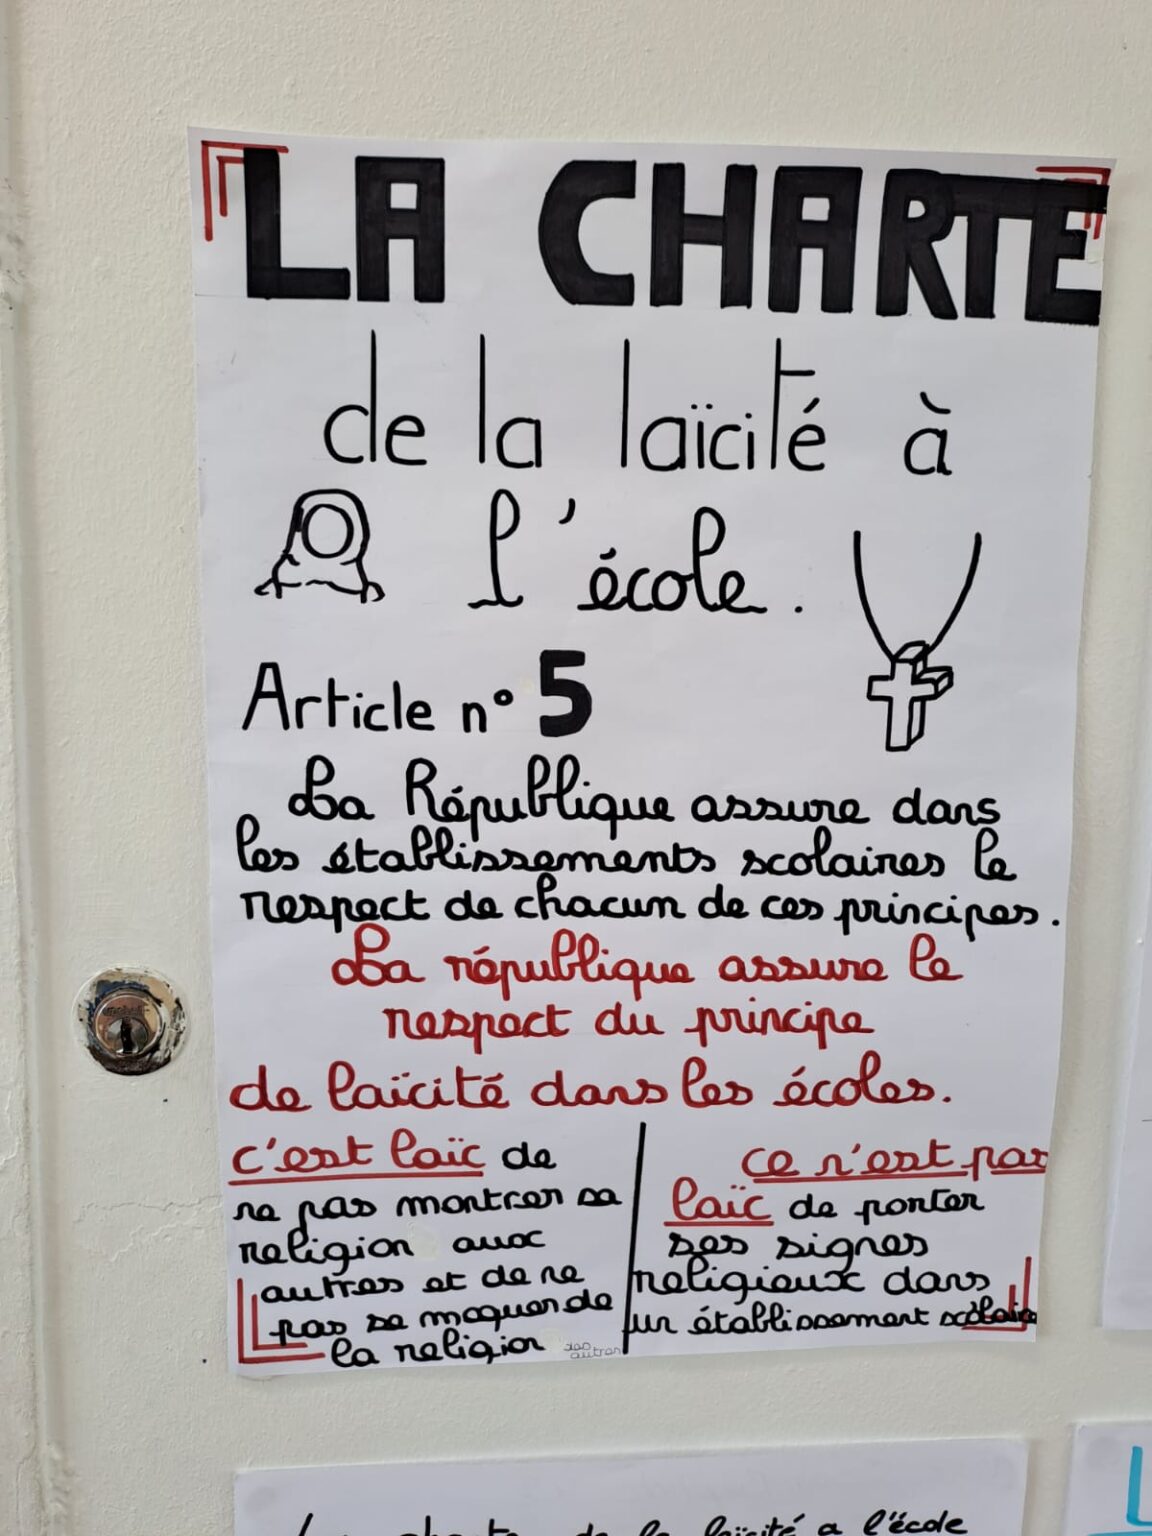 LA CHARTE
de la laïcité à
l'école.
Article n° 5
La République assure dans
les établissements scolaires le
respect de chacun de ces principes.
La république assure le
respect du principe
de laïcité dans les écoles.
c'est laïc de
ne pas montrer sa
religion aux
autres et de ne
pas se moquer de
la religion des
autres
ce n'est pas
laïc de porter
ses signes
religieux dans
un établissement scolaire
La charte de la laïcité a l'école